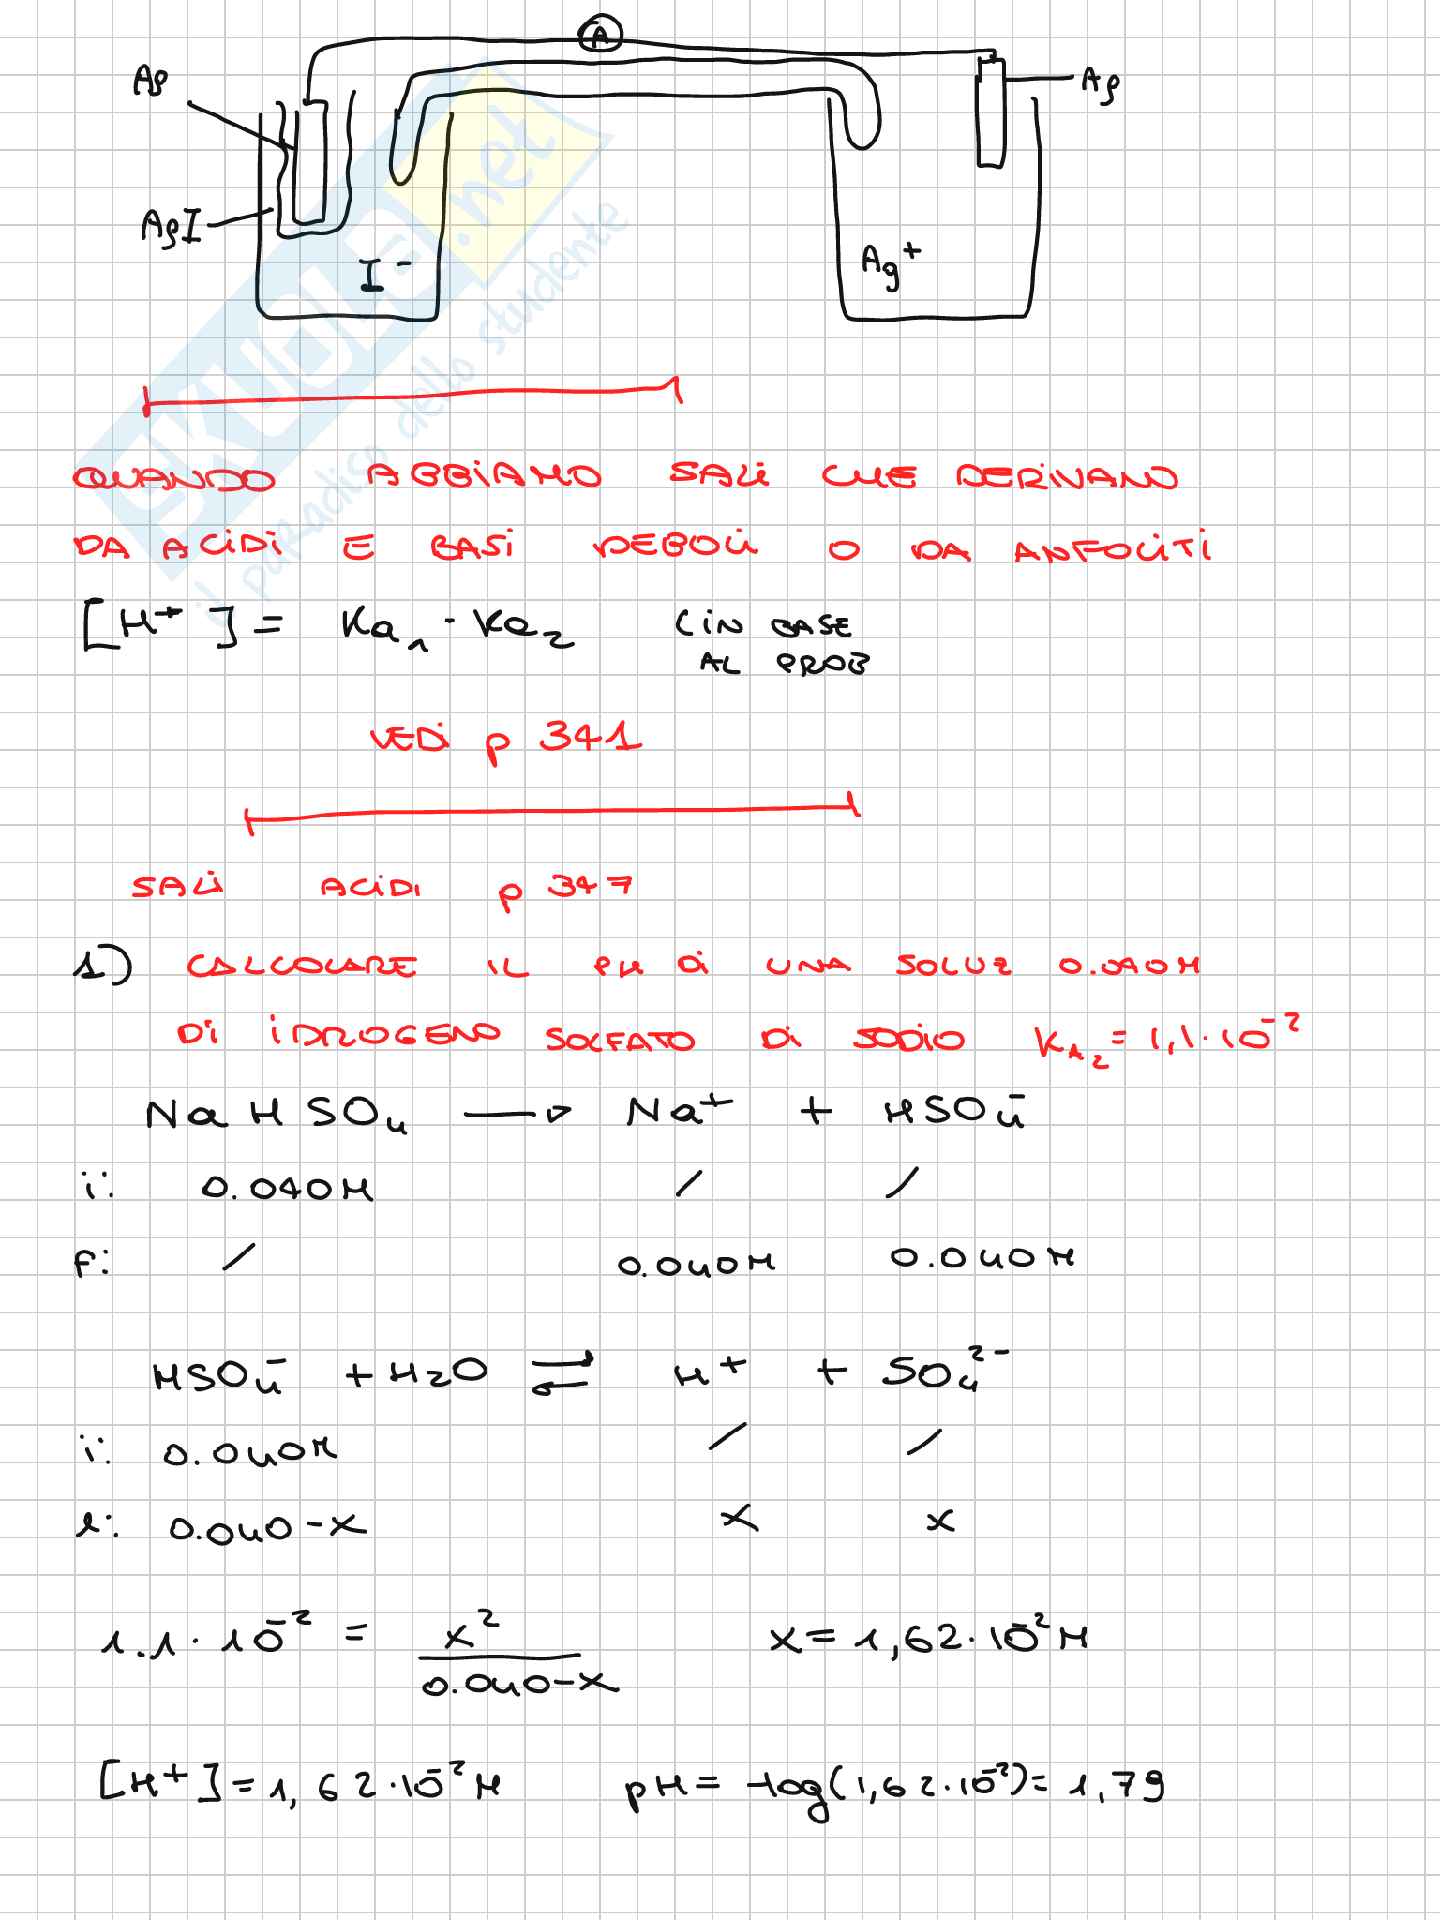 A
Ag
Ag
AgI
I⁻
Ag⁺
SKUOLA.net
il paradiso dello studente
QUANDO ABBIAMO SALI CHE DERIVANO
DA ACIDI E BASI DEBOLI O DA ANFOLITI
[H⁺] = Ka₁ · Ka₂ (IN BASE
AL PROB
VEDI p 341
SALI ACIDI p 347
1) CALCOLARE IL PH DI UNA SOLUZ 0.040M
DI IDROGENO SOLFATO DI SODIO KA₂ = 1,1·10⁻²
NaHSO₄ → Na⁺ + HSO₄⁻
i: 0.040M / /
f: / 0.040M 0.040M
HSO₄⁻ + H₂O ⇌ H⁺ + SO₄²⁻
i: 0.040M / /
e: 0.040-x x x
1.1·10⁻² = x² / 0.040-x x = 1,62·10⁻² M
[H⁺] = 1,62·10⁻² M pH = -log(1,62·10⁻²) = 1,79